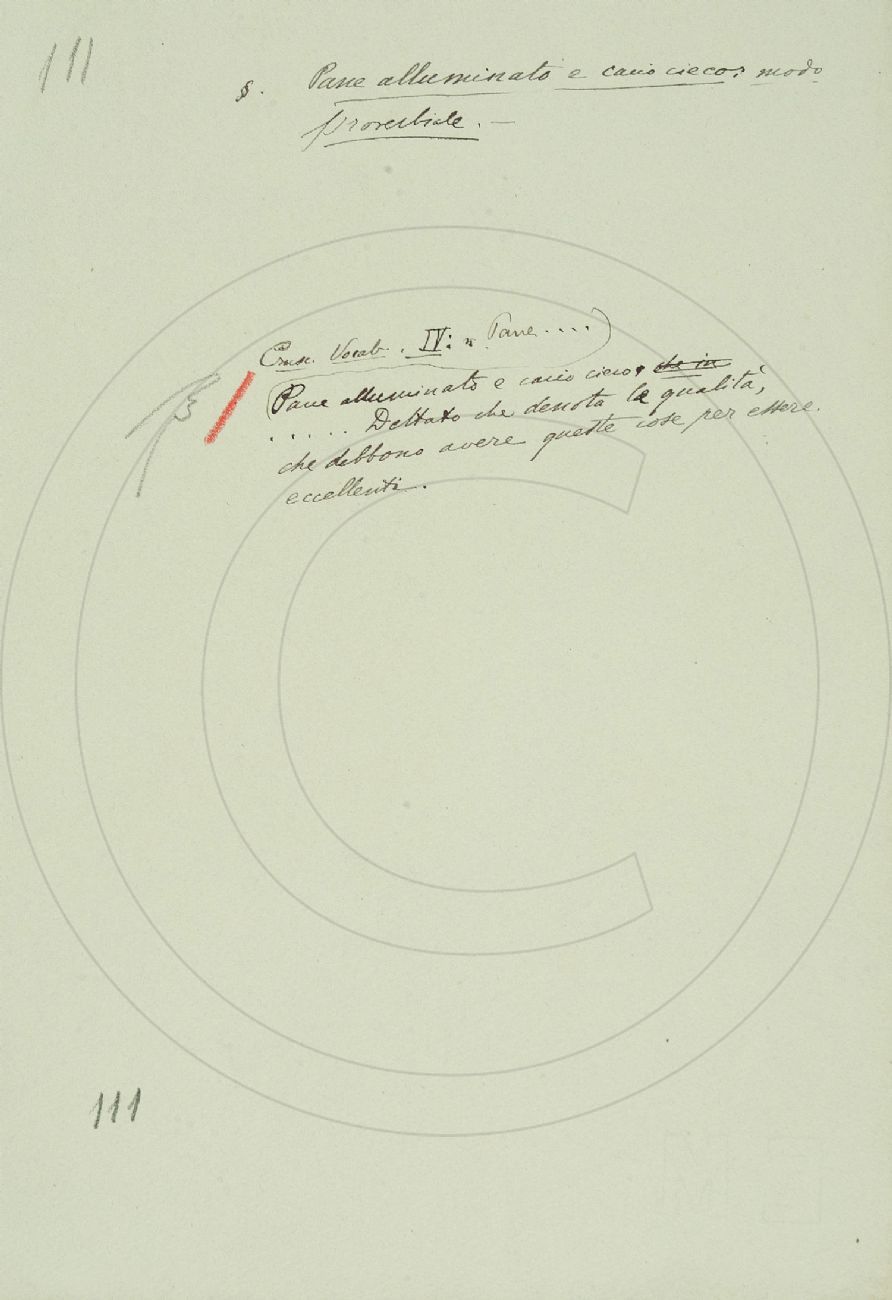 111
§. Pane alluminato e cacio cieco: modo
proverbiale. —
Crusc. Vocab. IV: " Pane....
Pane alluminato e cacio cieco, che in
..... Dettato che denota le qualità,
che debbono avere queste cose per essere
eccellenti.
111